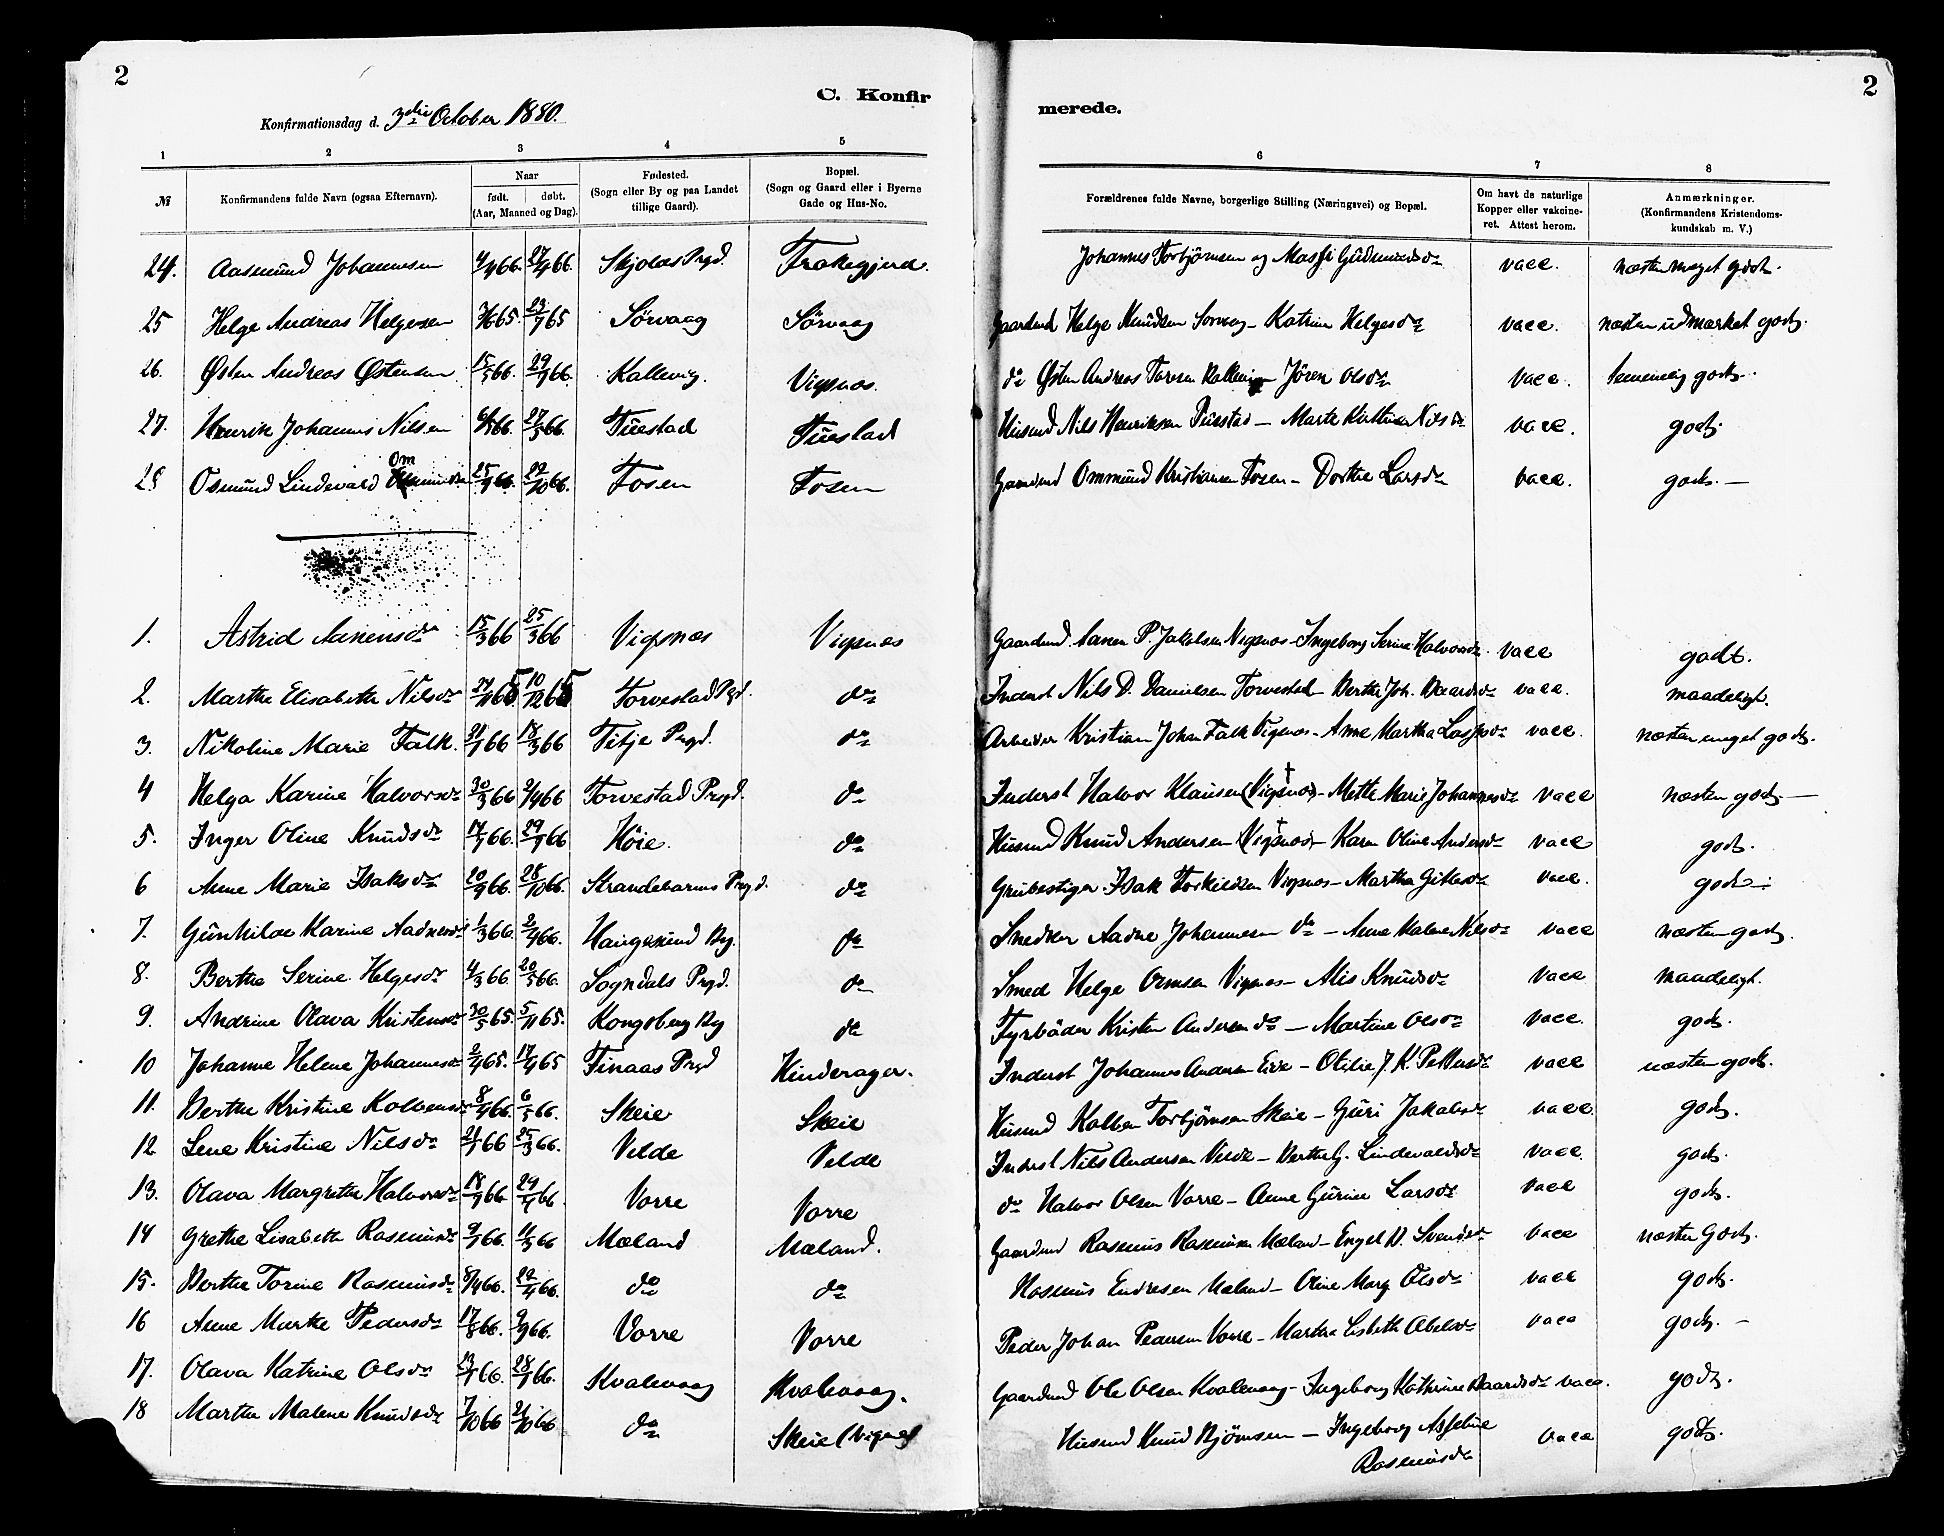 2
C. Konfir
merede.
2
Konfirmationsdag d. 3die October 1880.
1 2 3 4 5 6 7 8
№ Konfirmandens fulde Navn (ogsaa Efternavn). Naar født. døbt. (Aar, Maaned og Dag). Fødested. (Sogn eller By og paa Landet tillige Gaard). Bopæl. (Sogn og Gaard eller i Byerne Gade og Hus-No. Forældrenes fulde Navne, borgerlige Stilling (Næringsvei) og Bopæl. Om havt de naturlige Kopper eller vakcineret. Attest herom. Anmærkninger. (Konfirmandens Kristendomskundskab m. V.)
24. Aasmund Johannesen 27/4 66. Skjolds Prgd. Johannes Torbjörnsen og vacc. næsten meget godt.
25 Helge Andreas Helgesen 23/7 65 Sörvaag Sörvaag Gaardmd Helge Knudsen Sörvaag – Katrine Helgesdr vacc. næsten udmærket godt.
26. Østen Andreas Østensen 15/5 66. 29/ 66. Kallevig. Vigsnæs. do Østen Andreas Jören Olsdr vacc. temmelig godt.
27. Henrik Johannes Nilsen 27/5 66. Tuestad Tuestad Husmd Nils Henriksen Tuestad – Marte Nilsdr vacc. godt.
28 Osmund Lindevald Om 25/9 66. 22/10 66. Fosen Fosen Gaardmd Ommund Kristiansen Fosen – Dorthe Larsdr vacc. godt. –
1. Astrid Aanensdr 15/3 66 25/3 66 Vigsnæs Vigsnæs Gaardmd. Aanen P. Jakobsen Vigsnæs – Ingeborg Serine Halvorsdr. vacc godt.
2. Marthe Elisabeth Nilsdr 10/12 65 Torvestad Pgd. do Inderst Nils D. Danielsen Torvestad – Berthe Joh. Baardsdr vacc. maadeligt.
3. Nikoline Marie Falk. 21/1 66 18/3 66 Prgd. do Arbeider Kristian Johan Falk Vigsnæs – Anne Martha vacc. næsten meget godt.
4 Helga Karine Halvorsdr 30/3 66 2/4 66 Torvestad Prgd. do Inderst Halvor Klausen (Vigsnæs) † – Mette Marie Johannesdr vacc næsten godt –
5. Inger Oline Knudsdr 29/ 66 Höie. do Husmd Knud Andersen (Vigsnæs) † – Karen Oline Andersdr vacc godt.
6 Anne Marie Isaksdr 20/9 66. 28/10 66. Strandebarms Prgd. do Grubestiger Isak Torkildsen Vigsnæs – Martha vacc. godt
7. Gunhilde Karine Aadnesdr 1/3 66. 2/4 66. Haugesund By. do Snedker Aadne Johannesen do – Anne Malene Nilsdr vacc næsten godt.
8. Berthe Serine Helgesdr 4/3 66 20/5 66. Sogndals Prgd. do Smed Helge Ormsen Vigsnæs – Alis Knudsdr vacc maadeligt.
9. Andrine Olava Kristensdr 30/5 65. 5/11 65. Kongsberg By do Fyrböder Kristen Andersen do – Martine Olsdr vacc. godt.
10 Johanne Helene Johannesdr 2/4 65. 17/4 65 Tinaas Prgd Hinderager. Inderst Johannes Andersen Eide – Otilie J. K. Pettersdr vacc næsten godt.
11. Berthe Kristine Kolbensdr 8/4 66. 6/5 66. Skeie Skeie Husmd Kolben Torbjörnsen Skeie – Guri Jakobsdr vacc godt.
12 Lene Kristine Nilsdr 21/1 66 25/3 66. Velde Velde Inderst Nils Andersen Velde – Berthe G. Lindevaldsdr vacc godt.
13. Olava Margrethe Halvorsdr 18/ 66 29/4 66. Vorre Vorre do Halvor Olsen Vorre – Anne Gurine Larsdr vacc godt.
14 Grethe Lisabeth Rasmusdr 9/1 66. 11/3 66 Mæland Mæland. Gaardmd Rasmus Rasmusen Mæland – Engel B. Svendsdr vacc næsten Godt.
15. Berthe Torine Rasmusdr 8/4 66. 22/4 66. do do Rasmus Endresen Mæland – Oline Marg Olsdr vacc godt.
16 Anne Marthe Pedersdr 17/8 66. 9/9 66. Vorre Vorre Peder Johan Pedersen Vorre – Martha Lisbeth Abelsdr vacc godt. –
17. Olava Katrine Olsdr 28/ 66. Kvalevaag Kvalevaag. Gaardmd Ole Olsen Kvalevaag – Ingeborg Kathrine Baardsdr vacc. godt.
18 Marthe Malene Knudsdr 7/10 66 21/10 66 do Skeie (Vigsnæs) Husmd Knud Björnsen – Ingeborg Asseline Rasmusdr vacc godt.